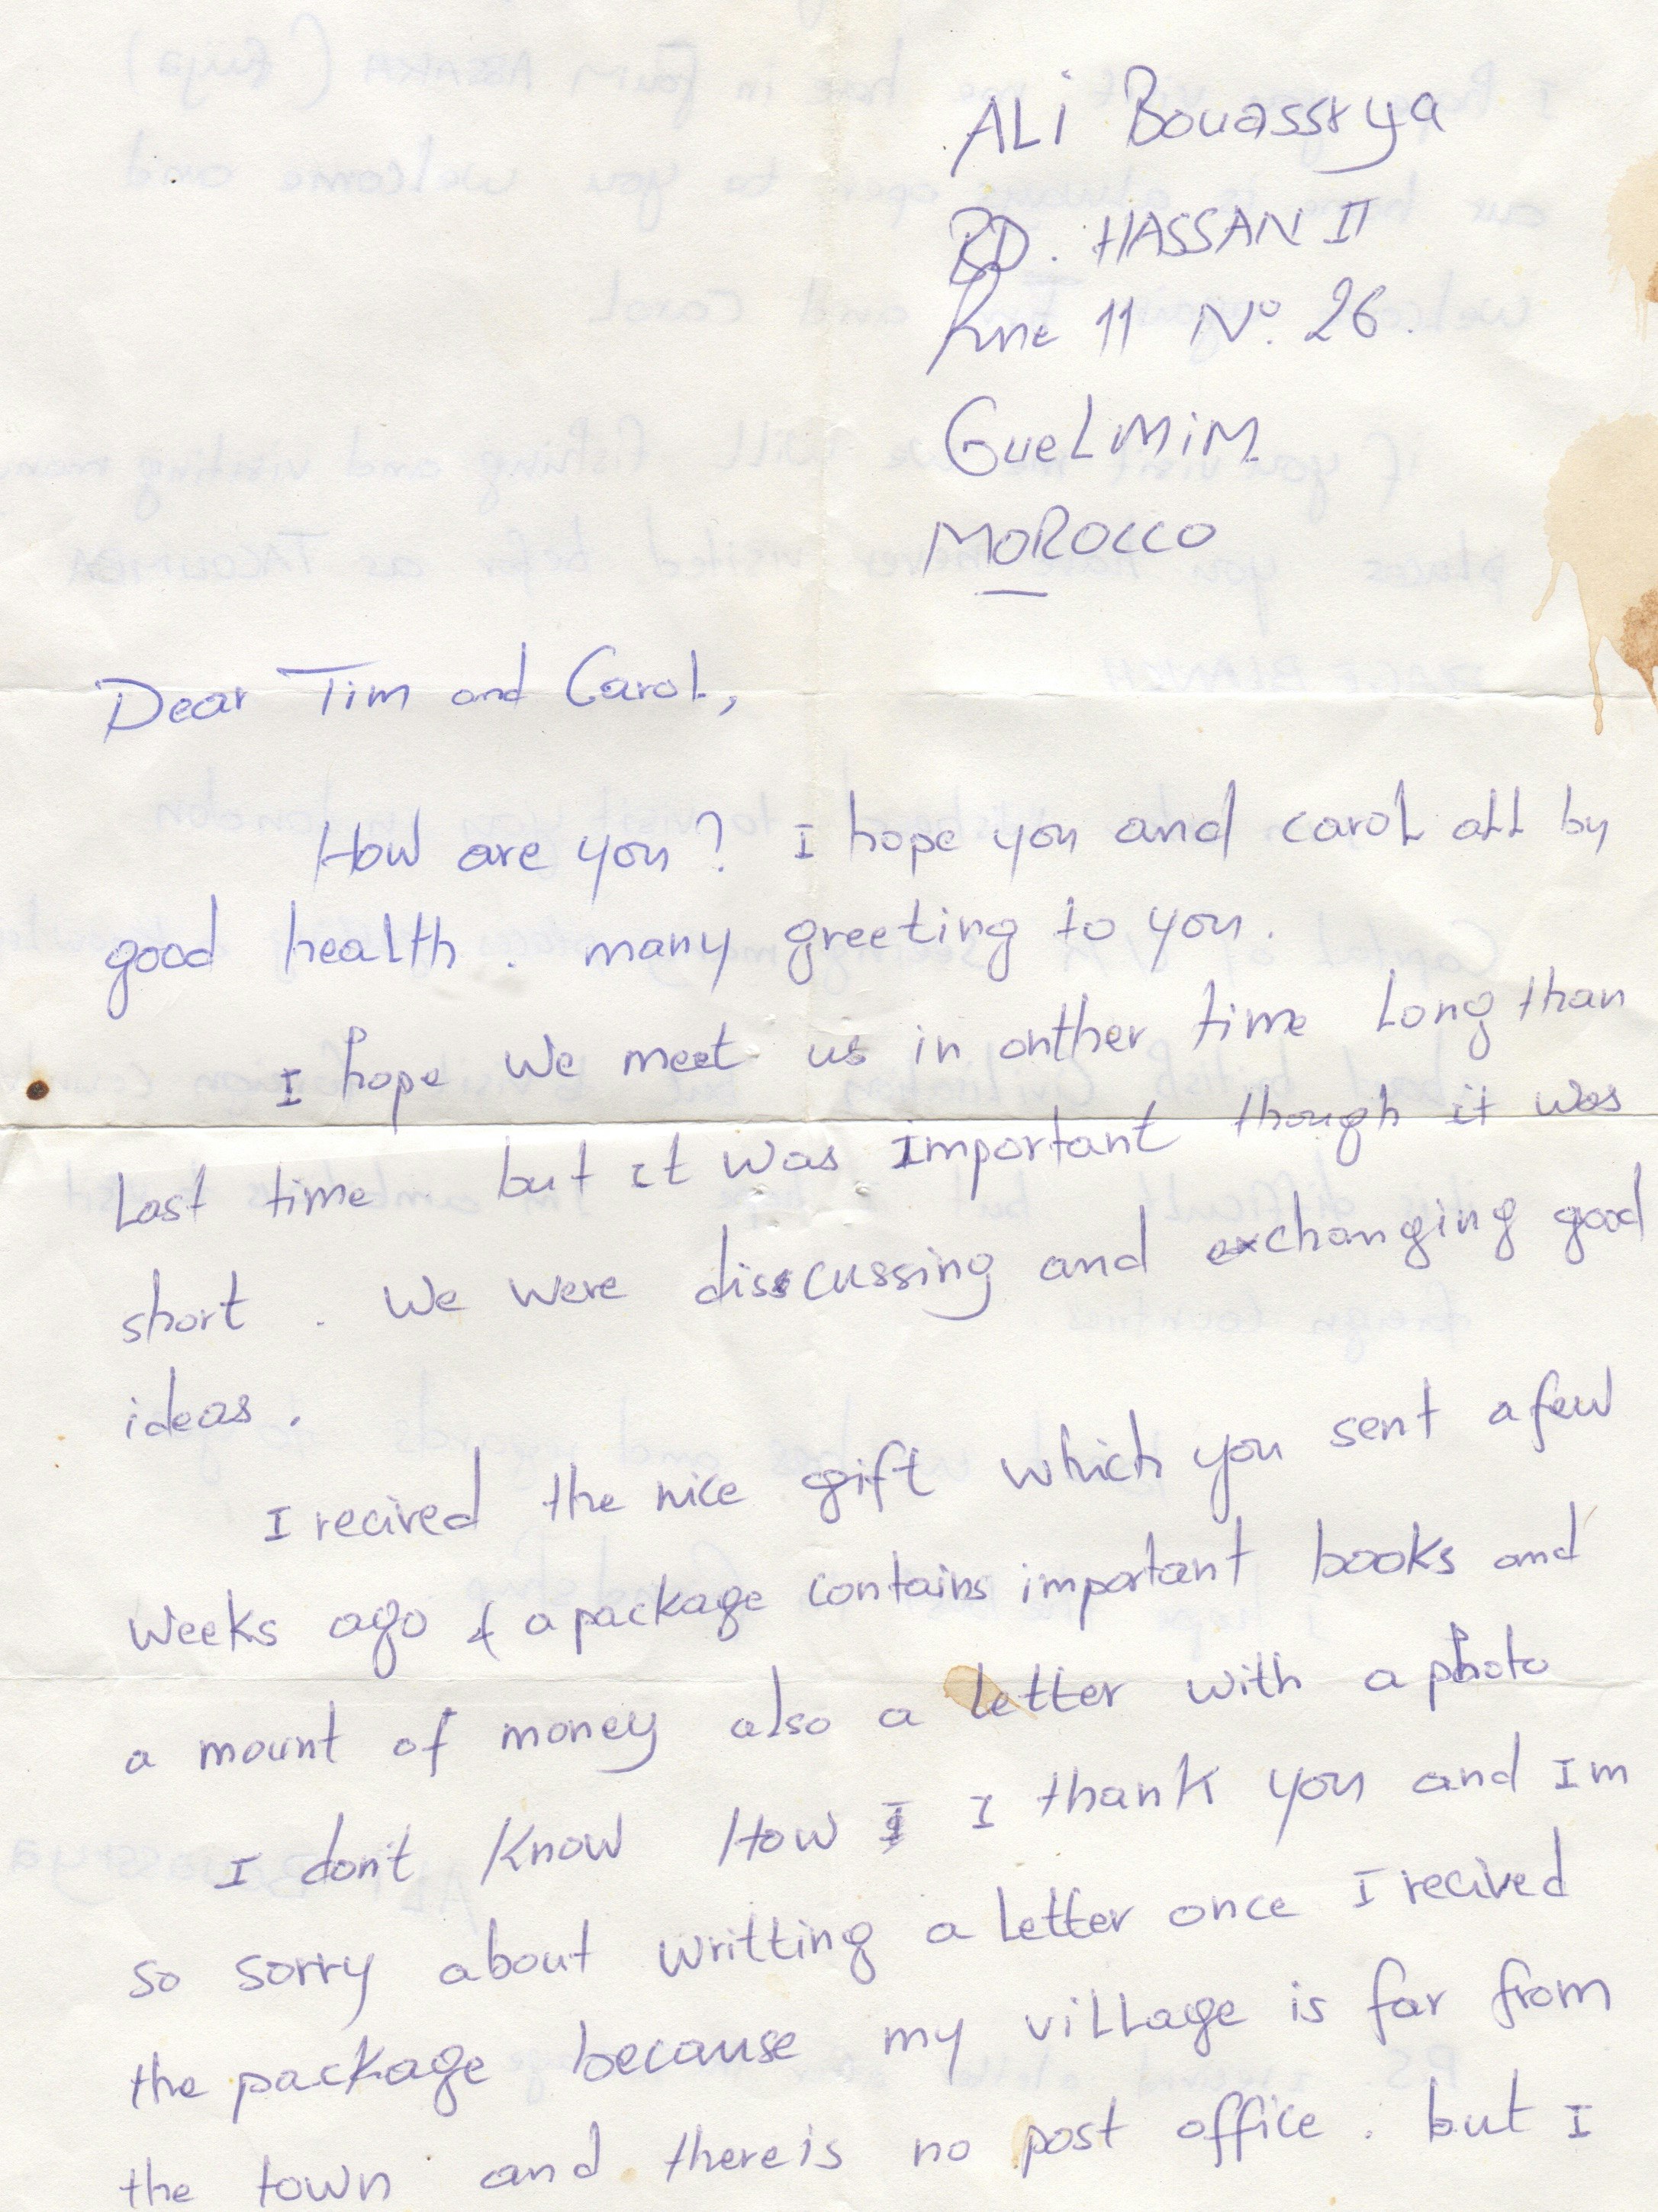 ALi Bouassrya
BD. HASSAN II
Rue 11 N° 26.
GueLMiM
MOROCCO
Dear Tim and Carol,
How are you? I hope you and carol all by
good health. many greeting to you.
I hope we meet us in onther time long than
last time. but it was important though it was
short. We were disscussing and exchanging good
ideas.
I recived the nice gift which you sent a few
weeks ago & a package contains important books and
a mount of money also a letter with a photo
I don't know How I I thank you and Im
so sorry about writting a letter once I recived
the package because my village is far from
the town and there is no post office. but I